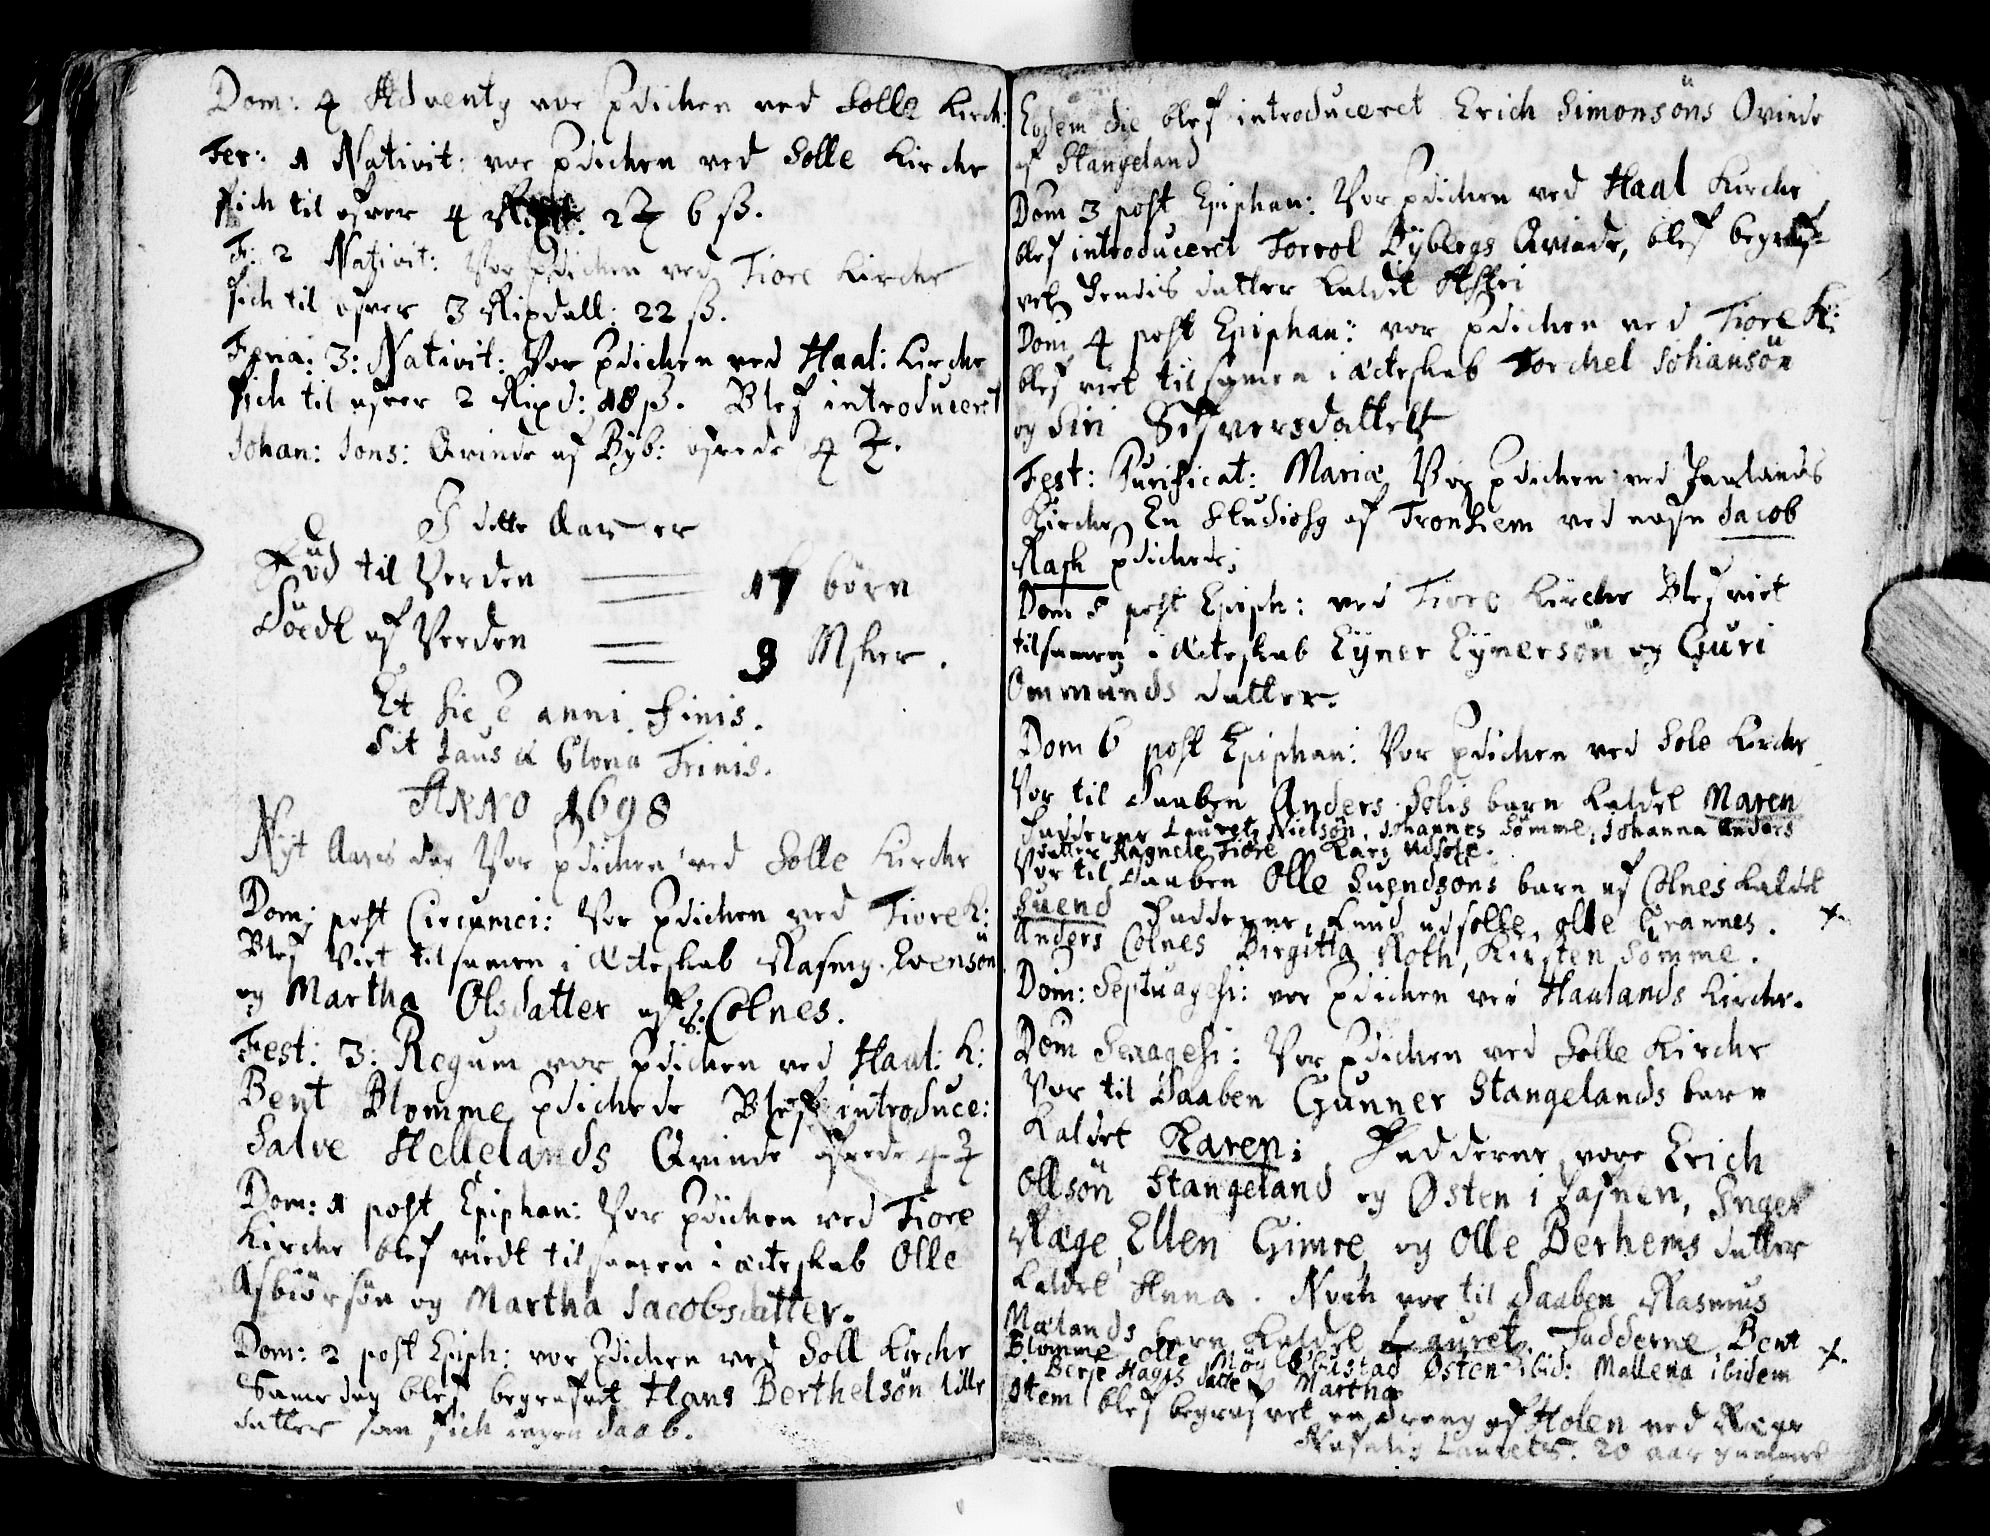 Dom: 4 Adventg var Pdichen ved Solle Kirch:
Fer: 1 Nativit: var Pdichen ved Solle Kirche
fich til offrer 4 2 ꝶ 6 ß.
F: 2 Nativit: Var Pdichen ved Tiore Kirche
fich til offrer 3 Rixdall: 22 ß.
Feria: 3: Nativit: Var Pdichen ved Haal: Kirche
fich til offrer 2 Rixd: 18 ß. Blef introduceret
Johan: Jons: Qvinde af Byb: offrede 4 ꝶ.
I dette Aar er
Fød til Verden 17 børn
Död af Verden 9 Msker.
Et sic è anni finis.
Sit laus & Gloria Trinis.
ANNO 1698
Nyt Aars dag Var Pdichen ved Solle Kirche
Dom: post Circumci: Var Pdichen ved Tiore K:
Blef Viet tilsamen i Ecteskab Rasmg. Evensön
og Martha Olsdatter af Colnes.
Fest: 3: Regum var Pdichen ved Haal: K:
Bent Blomme pdichede Blef introduce:
Salve Hellelands Qvinde offrede 4 ꝶ
Dom: 1 post Epiphan: Var Pdichen ved Tiore
Kirche blef viedt tilsamen i ecteskab Olle
Asbiörsön og Martha Jacobsdatter.
Dom: 2 post Epiph: var Pdichen ved Soll Kirche
Same dag blef begrafvet Hans Berthelsön lille
datter som fich ingen daab.
Eodem die blef introduceret Erich Simonsöns Qvinde
af Stangeland
Dom 3 post Epiphan: Var Pdichen ved Haal Kirche
blef introduceret Torrol Dybergs Qvinde, blef begraf-
vet hendis datter kaldet
Dom 4 post Epiphan: var Pdichen ved Tiore K:
blef viet tilsamen i ecteskab Torchel Johansön
og Siri Sifversdatter
Fest: Purificat: Mariæ Var Pdichen ved
Kirche, En Studiosg af Tronhiem ved nafn Jacob
Rask pdichede;
Dom 5 post Epiph: ved Tiore Kirche Blef viet
tilsamen i ecteskab Eyner Eynersön og Guri
Ommunds datter.
Dom 6 post Epiphan: Var Pdichen ved Sole Kirche
Var til Daaben Anders Solis barn kaldet Maren
Fadderne Lauretz Nielsön, Johannes Sömme, Johanna Anders
datter Ragnele Tiore Kari udsole.
Var til Daaben Olle Suendsöns barn af Colnes kaldet
Suend Fadderne, Knud udsolle, olle Grannes. x.
Anders Colnes Birgitta Roth, Kirsten Sömme.
Dom: Septuagesi: var Pdichen ved Haalands Kirche.
Dom Sexagesi: Var Pdichen ved Solle Kirche
Var til Daaben Gunner Stangelands barn
kaldet Karen; Fadderne vare Erich
Ollsön Stangeland og Østen i Jasnen, Inger
Ræge, Ellen Gimre, og Olle Berhems datter
kaldet Anna. Noch var til Daaben Rasmus
Mælands barn kaldet Lauret. Fadderne Bent
Blomme Olle Østen ibid: Mallena ibidem x.
Berje Hages datter Martha
Item blef begrafvet en dreng af Holen ved Ræge
Lauretz. 20 aar gammel